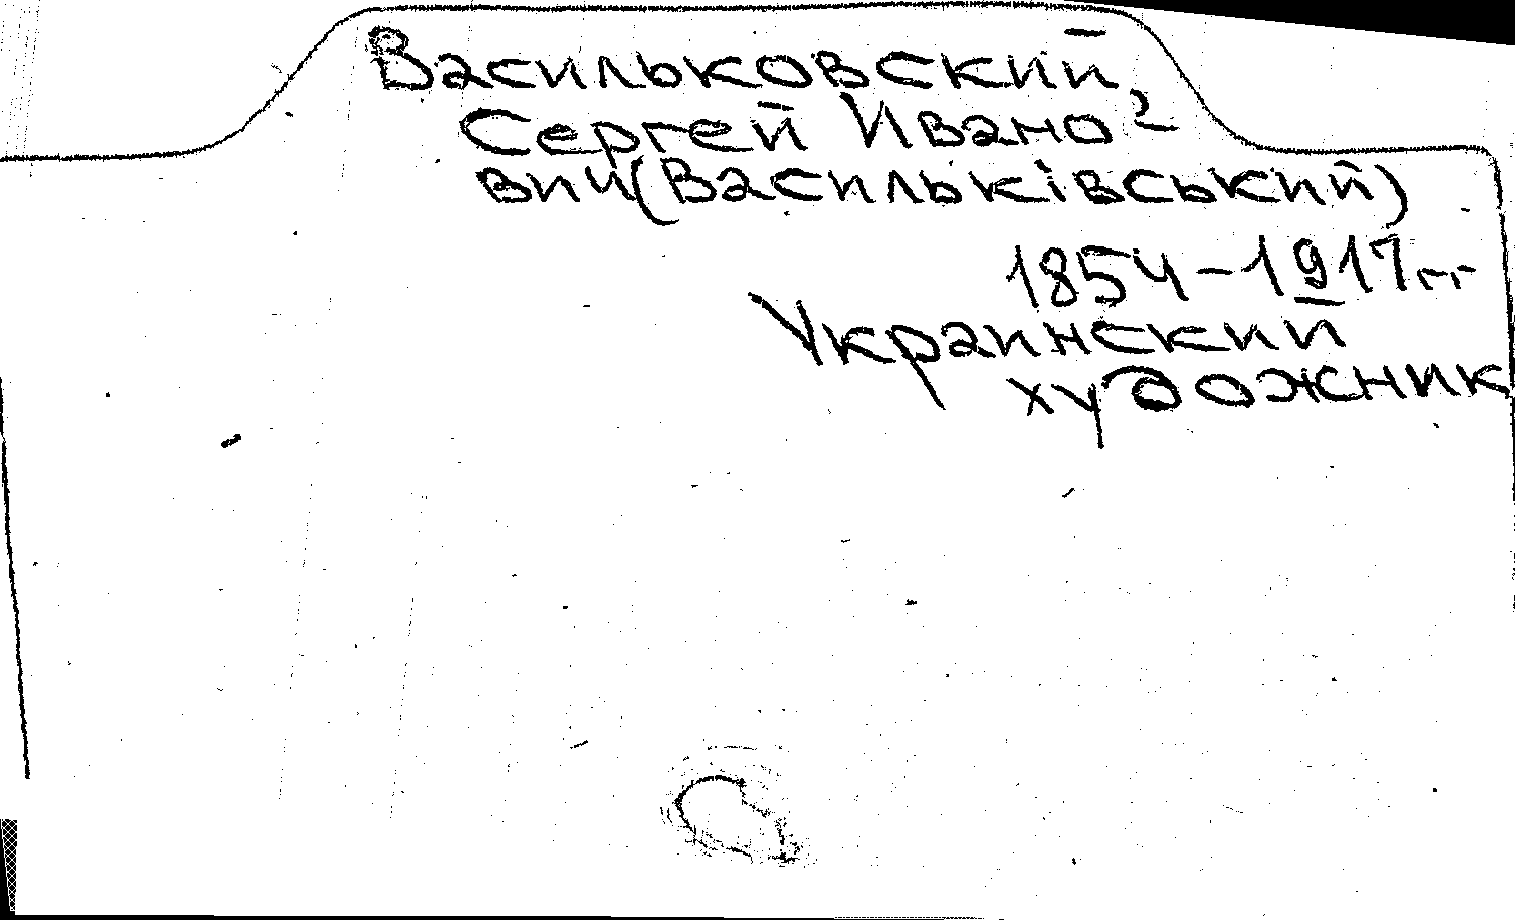 Васильковский
Сергей Ивано-
вич (Васильківський)
1854-1917 гг.
Украинский
художник